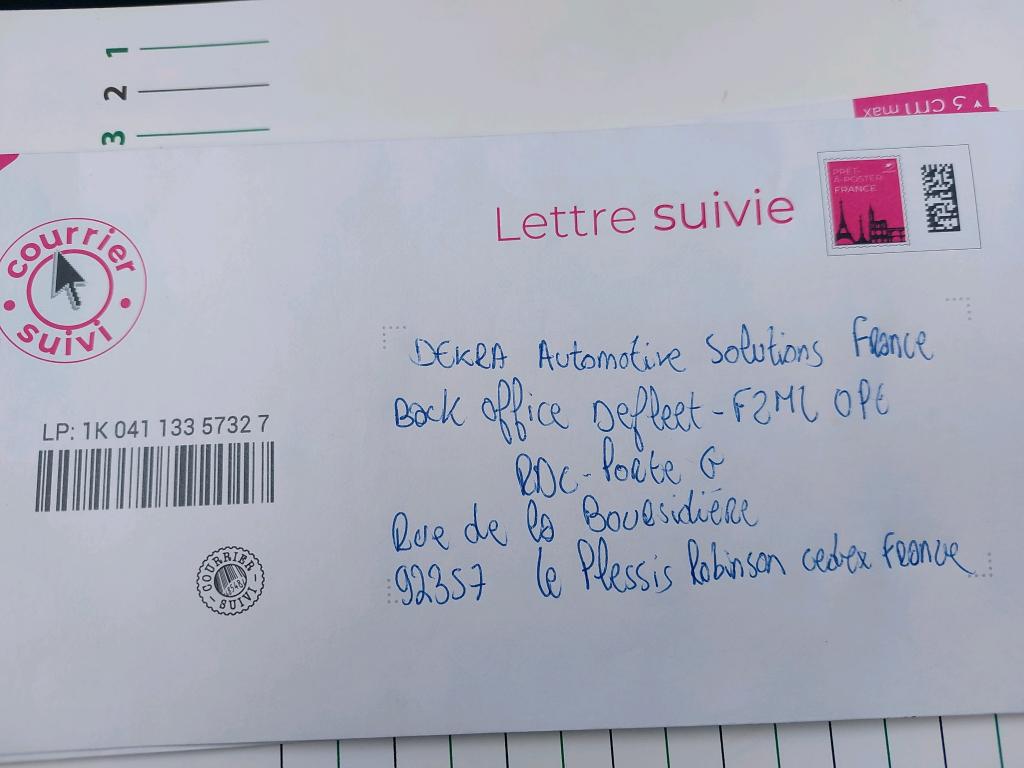 1
2
3
3 cm max
PRÊT-
À-POSTER
FRANCE
Lettre suivie
courrier
suivi
DEKRA Automotive Solutions France
Back office Defleet - F2ML OPE
RDC - Porte G
Rue de la Boursidière
92357 le Plessis Robinson cedex France
LP: 1K 041 133 5732 7
COURRIER
SUIVI